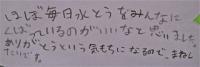 ほぼ毎日水とうをみんなに
くばっているのがいいなと思いました。
ありがとうという気もちになるので、まねし
たいです。